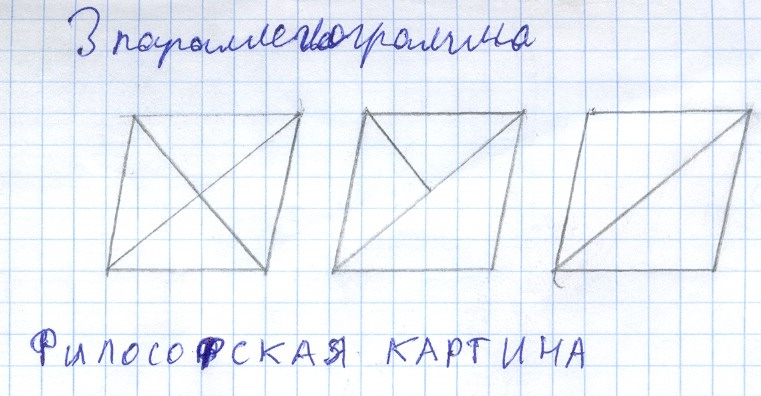 3 параллелограмма
ФИЛОСОФСКАЯ КАРТИНА